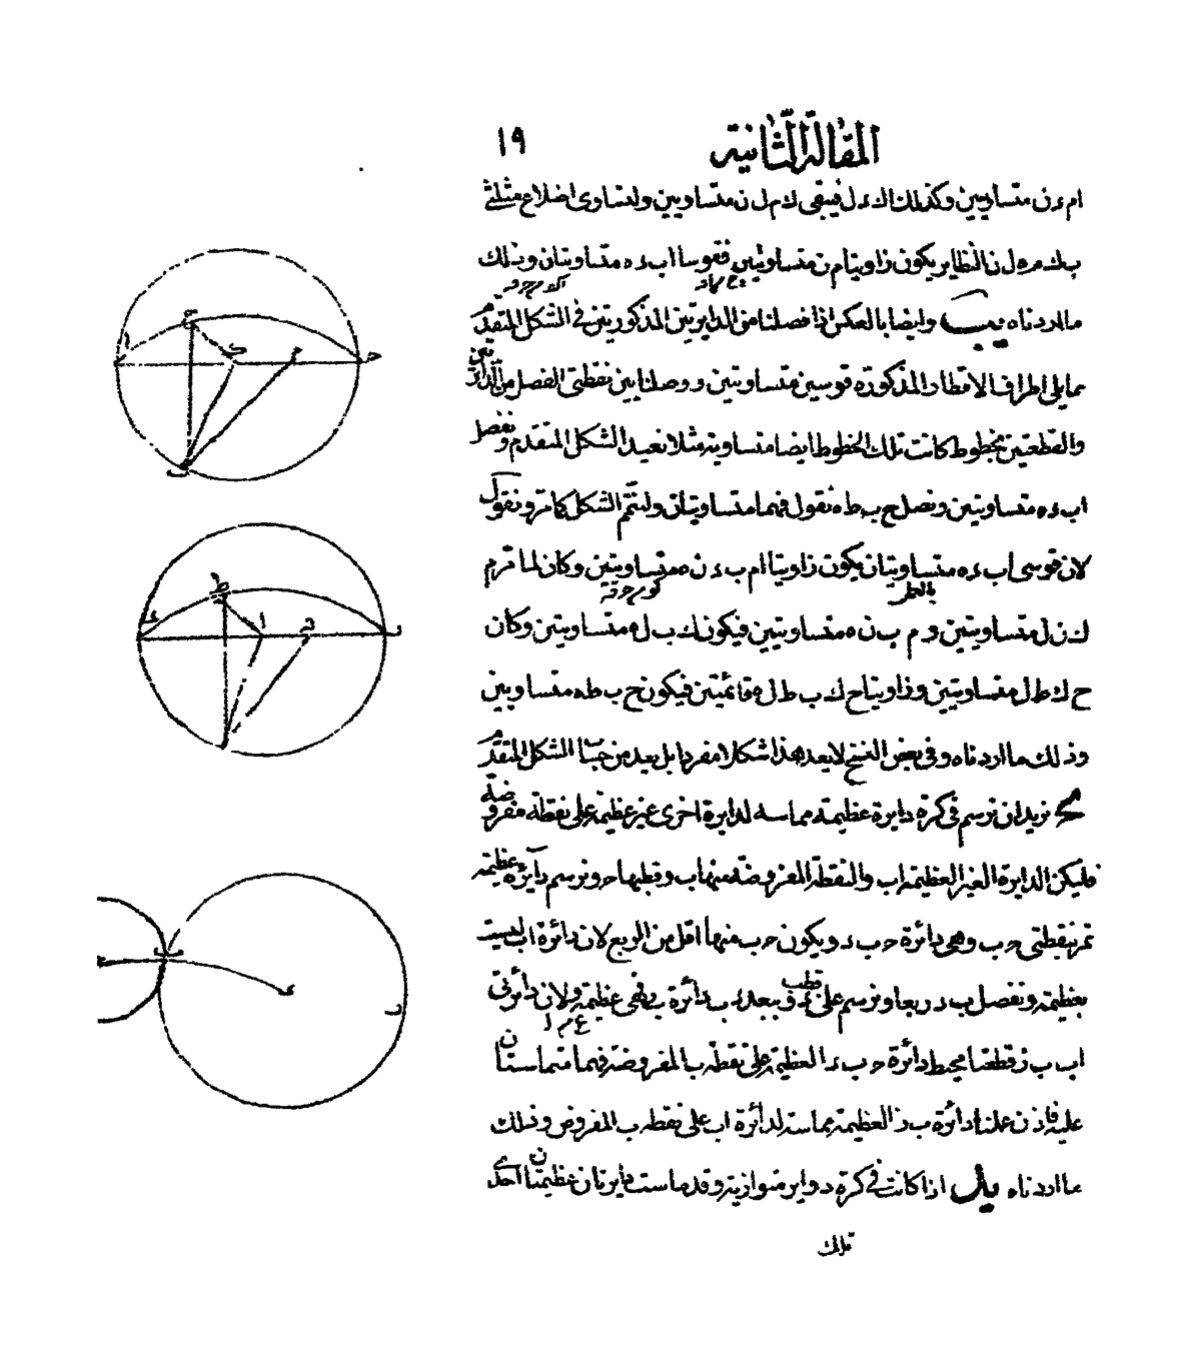 المقالة الثانية ١٩
ام ء ن متساويين وكذلك اك ء ل فيبقى ك م ل ن متساويين ولتساوى اضلاع مثلثى
ب ك م ه ل ن النظاير يكون زاويتا م ن متساويتين فقوسا اب ء ه متساويتان وذلك
ما اردناه يب وايضا بالعكس اذا فصلنا من الدايرتين المذكورتين فى الشكل المتقدم
مما يلى اطراف الاقطار المذكورة قوسين متساويتين ووصلنا بين نقطتى الفصل من الدائرتين
والقطعتين بخطوط كانت تلك الخطوط ايضا متساوية مثلا نعيد الشكل المتقدم ونفصل
اب ء ه متساويتين ونصل ح ب ط ه نقول فهما متساويتان ولنتمم الشكل كما مر ونقول
لان قوسى اب ء ه متساويتان يكون زاويتا ام ب ء ن ه متساويتين وكان لما مر م
ك ن ل متساويتين و م ب ن ه متساويتين فيكون ك ب ل ه متساويتين وكان
ح ك ط ل متساويتين وزاويتا ح ك ب ط ل ه قائمتين فيكون ح ب ط ه متساويين
وذلك ما اردناه وفى بعض النسخ لا يعد هذا شكلا مفردا بل يعد من حساب الشكل المتقدم
يج نريد ان نرسم فى كرة دايرة عظيمة مماسة لدايرة اخرى غير عظيمة على نقطة مفروضة
فليكن الدايرة الغير العظيمة اب والنقطة المفروضة منها ب وقطبها ح ونرسم دائرة عظيمة
تمر بنقطتى ح ب وهى دائرة ح ب ء ويكون ح ب منها اقل من الربع لان دائرة اب ليست
بعظيمة ونفصل ب ء ربعا ونرسم على قطب ء وببعد ء ب دائرة ب ز فهى عظيمة ولان دائرتى
اب ب ز قطعتا محيط دائرة ح ب ء العظيمة على نقطة ب المفروضة فهما متماستان
عليه فاذن عملنا دائرة ب ز العظيمة مماسة لدائرة اب على نقطة ب المفروض وذلك
ما اردناه يد اذا كانت فى كرة دواير متوازية وقد ماست دايرتان عظيمتان احدى
تلك